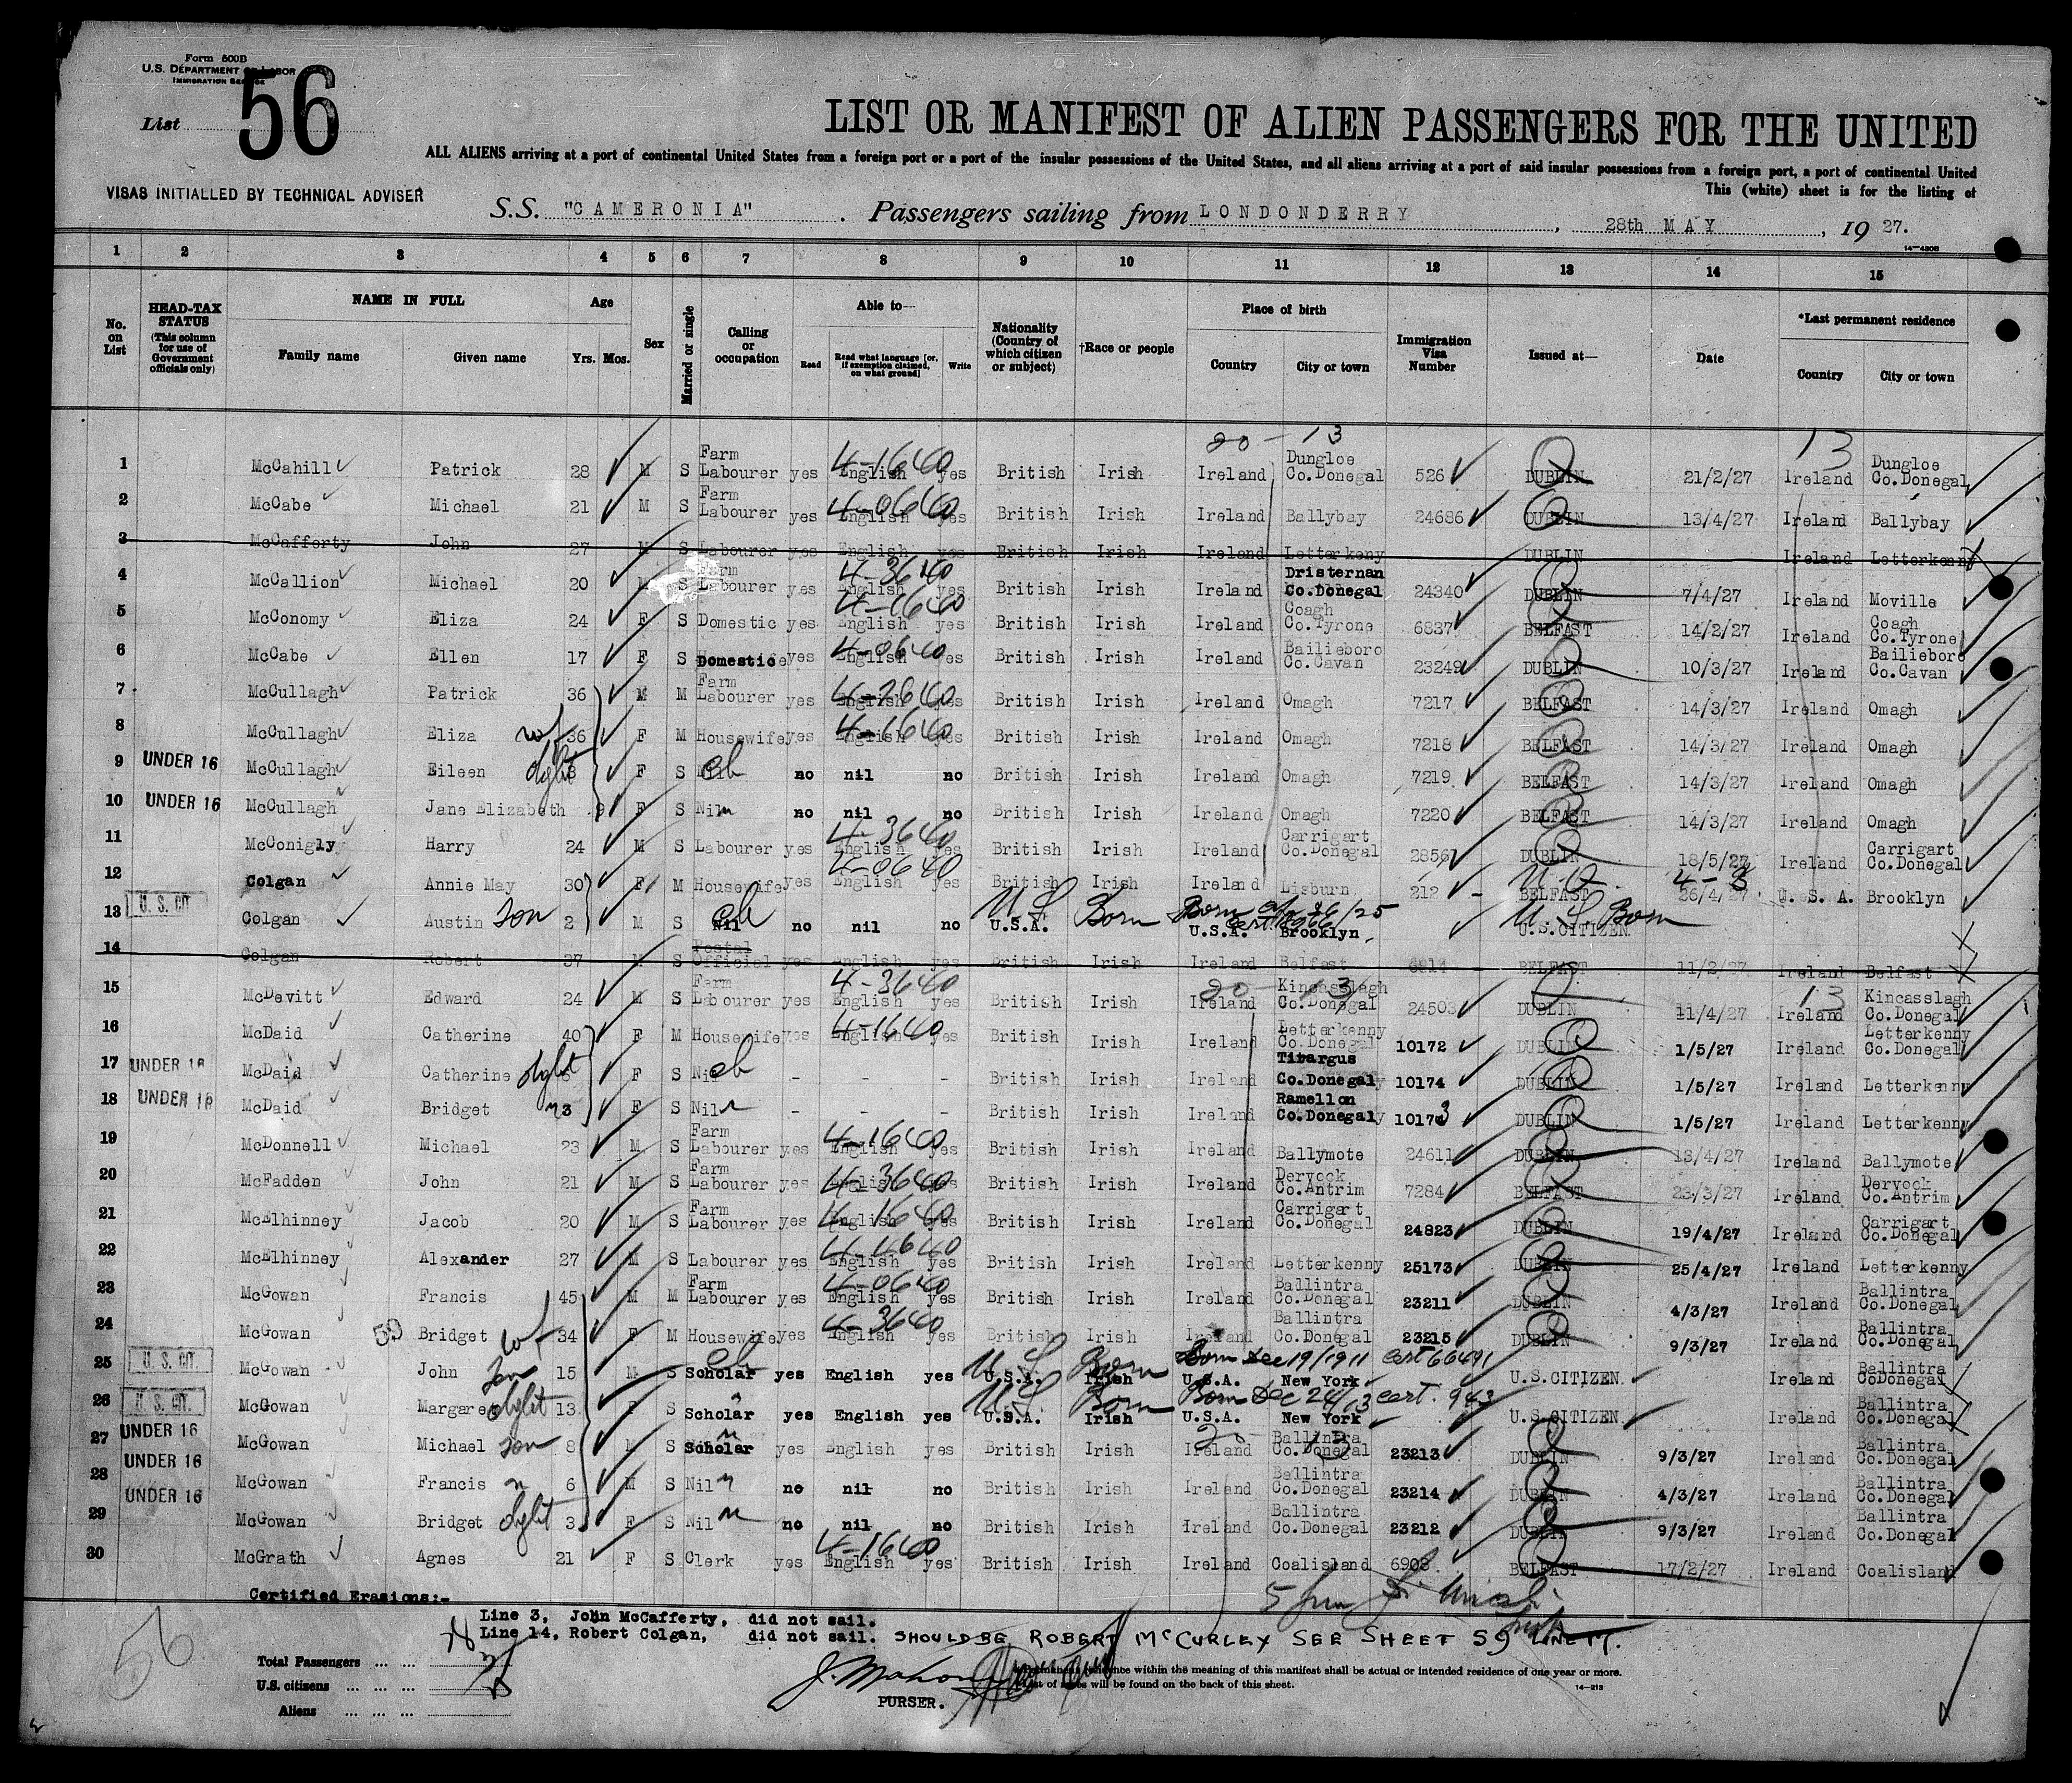 Form 500B
U.S. DEPARTMENT OF LABOR
IMMIGRATION SERVICE
List 56
LIST OR MANIFEST OF ALIEN PASSENGERS FOR THE UNITED
ALL ALIENS arriving at a port of continental United States from a foreign port or a port of the insular possessions of the United States, and all aliens arriving at a port of said insular possessions from a foreign port, a port of continental United
This (white) sheet is for the listing of
VISAS INITIALLED BY TECHNICAL ADVISER
S.S. "CAMERONIA". Passengers sailing from LONDONDERRY, 28th MAY, 19 27.
14—4208
1 2 3 4 5 6 7 8 9 10 11 12 13 14 15
No. on List
HEAD-TAX STATUS (This column for use of Government officials only)
NAME IN FULL Family name Given name
Age Yrs. Mos.
Sex
Married or single
Calling or occupation
Able to— Read Read what language [or, if exemption claimed, on what ground] Write
Nationality (Country of which citizen or subject)
†Race or people
Place of birth Country City or town
Immigration Visa Number
Issued at—
Date
*Last permanent residence Country City or town
20 - 13 13
1 McCahill Patrick 28 M S Farm Labourer yes English 4-1640 yes British Irish Ireland Dungloe Co.Donegal 526 DUBLIN 21/2/27 Ireland Dungloe Co.Donegal
2 McCabe Michael 21 M S Farm Labourer yes English 4-0640 yes British Irish Ireland Ballybay 24686 DUBLIN 13/4/27 Ireland Ballybay
3 McCafferty John 27 M S Labourer yes English yes British Irish Ireland Letterkeny DUBLIN Ireland Letterkenny
4 McCallion Michael 20 M S Farm Labourer yes English 4-3640 yes British Irish Ireland Dristernan Co.Donegal 24340 DUBLIN 7/4/27 Ireland Moville
5 McConomy Eliza 24 F S Domestic yes English 4-1640 yes British Irish Ireland Coagh Co.Tyrone 6837 BELFAST 14/2/27 Ireland Coagh Co.Tyrone
6 McCabe Ellen 17 F S Domestic yes English 4-0640 yes British Irish Ireland Bailieboro Co.Cavan 23249 DUBLIN 10/3/27 Ireland Bailieboro Co.Cavan
7 McCullagh Patrick 36 M M Farm Labourer yes English 4-2640 yes British Irish Ireland Omagh 7217 BELFAST 14/3/27 Ireland Omagh
8 McCullagh Eliza wf 36 F M Housewife yes English 4-1640 yes British Irish Ireland Omagh 7218 BELFAST 14/3/27 Ireland Omagh
9 UNDER 16 McCullagh Eileen F S ch no nil no British Irish Ireland Omagh 7219 BELFAST 14/3/27 Ireland Omagh
10 UNDER 16 McCullagh Jane Elizabeth 9 F S Nil no nil no British Irish Ireland Omagh 7220 BELFAST 14/3/27 Ireland Omagh
11 McConigly Harry 24 M S Labourer yes English 4-3640 yes British Irish Ireland Carrigart Co.Donegal 2856 DUBLIN 18/5/27 Ireland Carrigart Co.Donegal
12 Colgan Annie May 30 F M Housewife yes English 4-0640 yes British Irish Ireland Lisburn 212 BELFAST 26/4/27 U.S.A. Brooklyn
13 U.S. CIT. Colgan Austin Son 2 M S Nil ch no nil no U.S.A. U S Born Born U.S.A. Brooklyn U.S.CITIZEN U S Born
14 Colgan Robert 37 M S Postal Official yes English yes British Irish Ireland Belfast 6814 BELFAST 11/2/27 Ireland Belfast
15 McDevitt Edward 24 M S Farm Labourer yes English 4-3640 yes British Irish Ireland Kincasslagh Co.Donegal 24503 DUBLIN 11/4/27 Ireland Kincasslagh Co.Donegal
16 McDaid Catherine 40 F M Housewife yes English 4-1640 British Irish Ireland Letterkenny Co.Donegal 10172 DUBLIN 1/5/27 Ireland Letterkenny Co.Donegal
17 UNDER 16 McDaid Catherine F S Nil ch - - - British Irish Ireland Co.Donegal 10174 DUBLIN 1/5/27 Ireland Letterkenny
18 UNDER 16 McDaid Bridget 3 F S Nil - - - British Irish Ireland Ramellon Co.Donegal 10173 DUBLIN 1/5/27 Ireland Letterkenny
19 McDonnell Michael 23 M S Farm Labourer yes English 4-1640 yes British Irish Ireland Ballymote 24611 DUBLIN 13/4/27 Ireland Ballymote
20 McFadden John 21 M S Farm Labourer yes English 4-3640 yes British Irish Ireland Dervock Co.Antrim 7284 BELFAST 23/3/27 Ireland Dervock Co.Antrim
21 McElhinney Jacob 20 M S Farm Labourer yes English 4-1640 yes British Irish Ireland Carrigart Co.Donegal 24823 DUBLIN 19/4/27 Ireland Carrigart Co.Donegal
22 McElhinney Alexander 27 M S Labourer yes English yes British Irish Ireland Letterkenny 25173 DUBLIN 25/4/27 Ireland Letterkenny
23 McGowan Francis 45 M M Farm Labourer yes English 4-0640 yes British Irish Ireland Ballintra Co.Donegal 23211 DUBLIN 4/3/27 Ireland Ballintra Co.Donegal
24 McGowan Bridget wf 34 F M Housewife yes English 4-3640 yes British Irish Ireland Ballintra Co.Donegal 23215 DUBLIN 9/3/27 Ireland Ballintra Co.Donegal
25 U.S. CIT. McGowan John Son 15 M S Scholar yes English yes U.S.A. Irish U S Born Born Dec 19/1911 U.S.A. New York U.S.CITIZEN. Ireland Ballintra CoDonegal
26 U.S. CIT. McGowan Margaret 13 F S Scholar yes English yes U.S.A. Irish U S Born Born Dec 24/13 cert. 943 U.S.A. New York U.S.CITIZEN. Ireland Ballintra Co.Donegal
27 UNDER 16 McGowan Michael Son 8 M S Scholar yes English yes British Irish Ireland Ballintra Co.Donegal 23213 DUBLIN 9/3/27 Ireland Ballintra Co.Donegal
28 UNDER 16 McGowan Francis 6 M S Nil no nil no British Irish Ireland Ballintra Co.Donegal 23214 DUBLIN 4/3/27 Ireland Ballintra Co.Donegal
29 UNDER 16 McGowan Bridget 3 F S Nil no nil no British Irish Ireland Ballintra Co.Donegal 23212 DUBLIN 9/3/27 Ireland Ballintra Co.Donegal
30 McGrath Agnes 21 F S Clerk yes English 4-1640 yes British Irish Ireland Coalisland 6908 BELFAST 17/2/27 Ireland Coalisland
Certified Erasions:-
Line 3, John McCafferty, did not sail.
Line 14, Robert Colgan, did not sail. SHOULD BE ROBERT McCURLEY SEE SHEET 59 LINE 17.
56
Total Passengers ... ...
U.S. citizens ... ... ...
Aliens ... ... ...
J. Mahon
PURSER.
*Permanent residence within the meaning of this manifest shall be actual or intended residence of one year or more.
†List of races will be found on the back of this sheet.
14—213